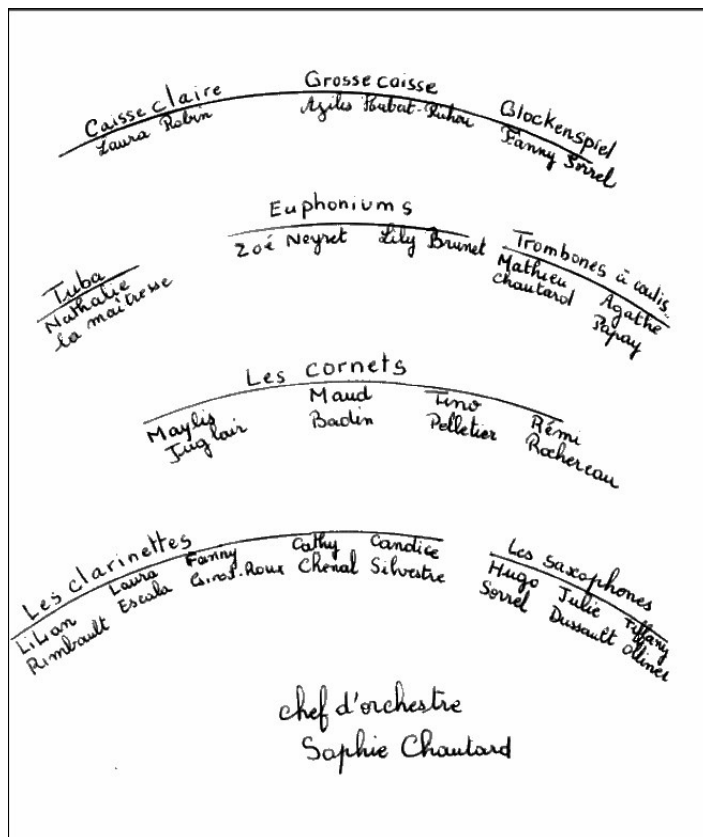 Caisse claire
Laura Robin
Grosse caisse
Glockenspiel
Fanny Sorrel
Tuba
Nathalie
la maîtresse
Euphoniums
Zoé Neyret Lily Brunet
Trombones à coulis..
Mathieu
Chautard
Agathe
Papay
Les cornets
Maylis
Juglair
Maud
Badin
Tino
Pelletier
Rémi
Rochereau
Les clarinettes
Lilian
Rimbault
Laura
Escala
Fanny
Cathy
Chenal
Candice
Silvestre
Les saxophones
Hugo
Sorrel
Julie
Dussault
Tiffany
chef d'orchestre
Sophie Chautard